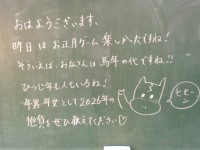 おはようございます。
昨日はお正月ゲーム楽しかったですね！
そういえば、みなさんは馬年の代ですね!!
ひつじ年も人もいるね！
年男年女として2026年の
抱負をぜひ教えてください♡
ヒヒーン